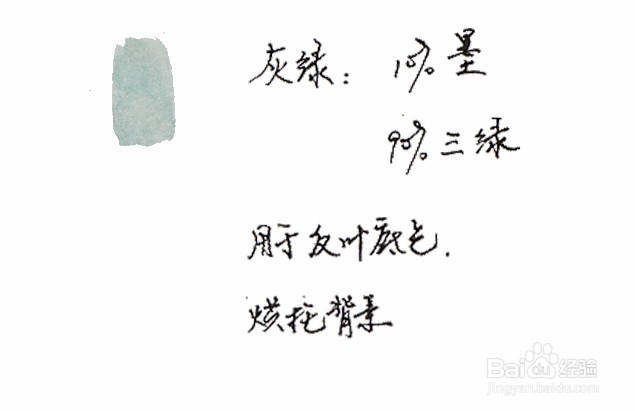 灰绿：10% 墨
90% 三绿
用于反叶底色.
烘托背景
Baidu 经验
jingyan.baidu.com